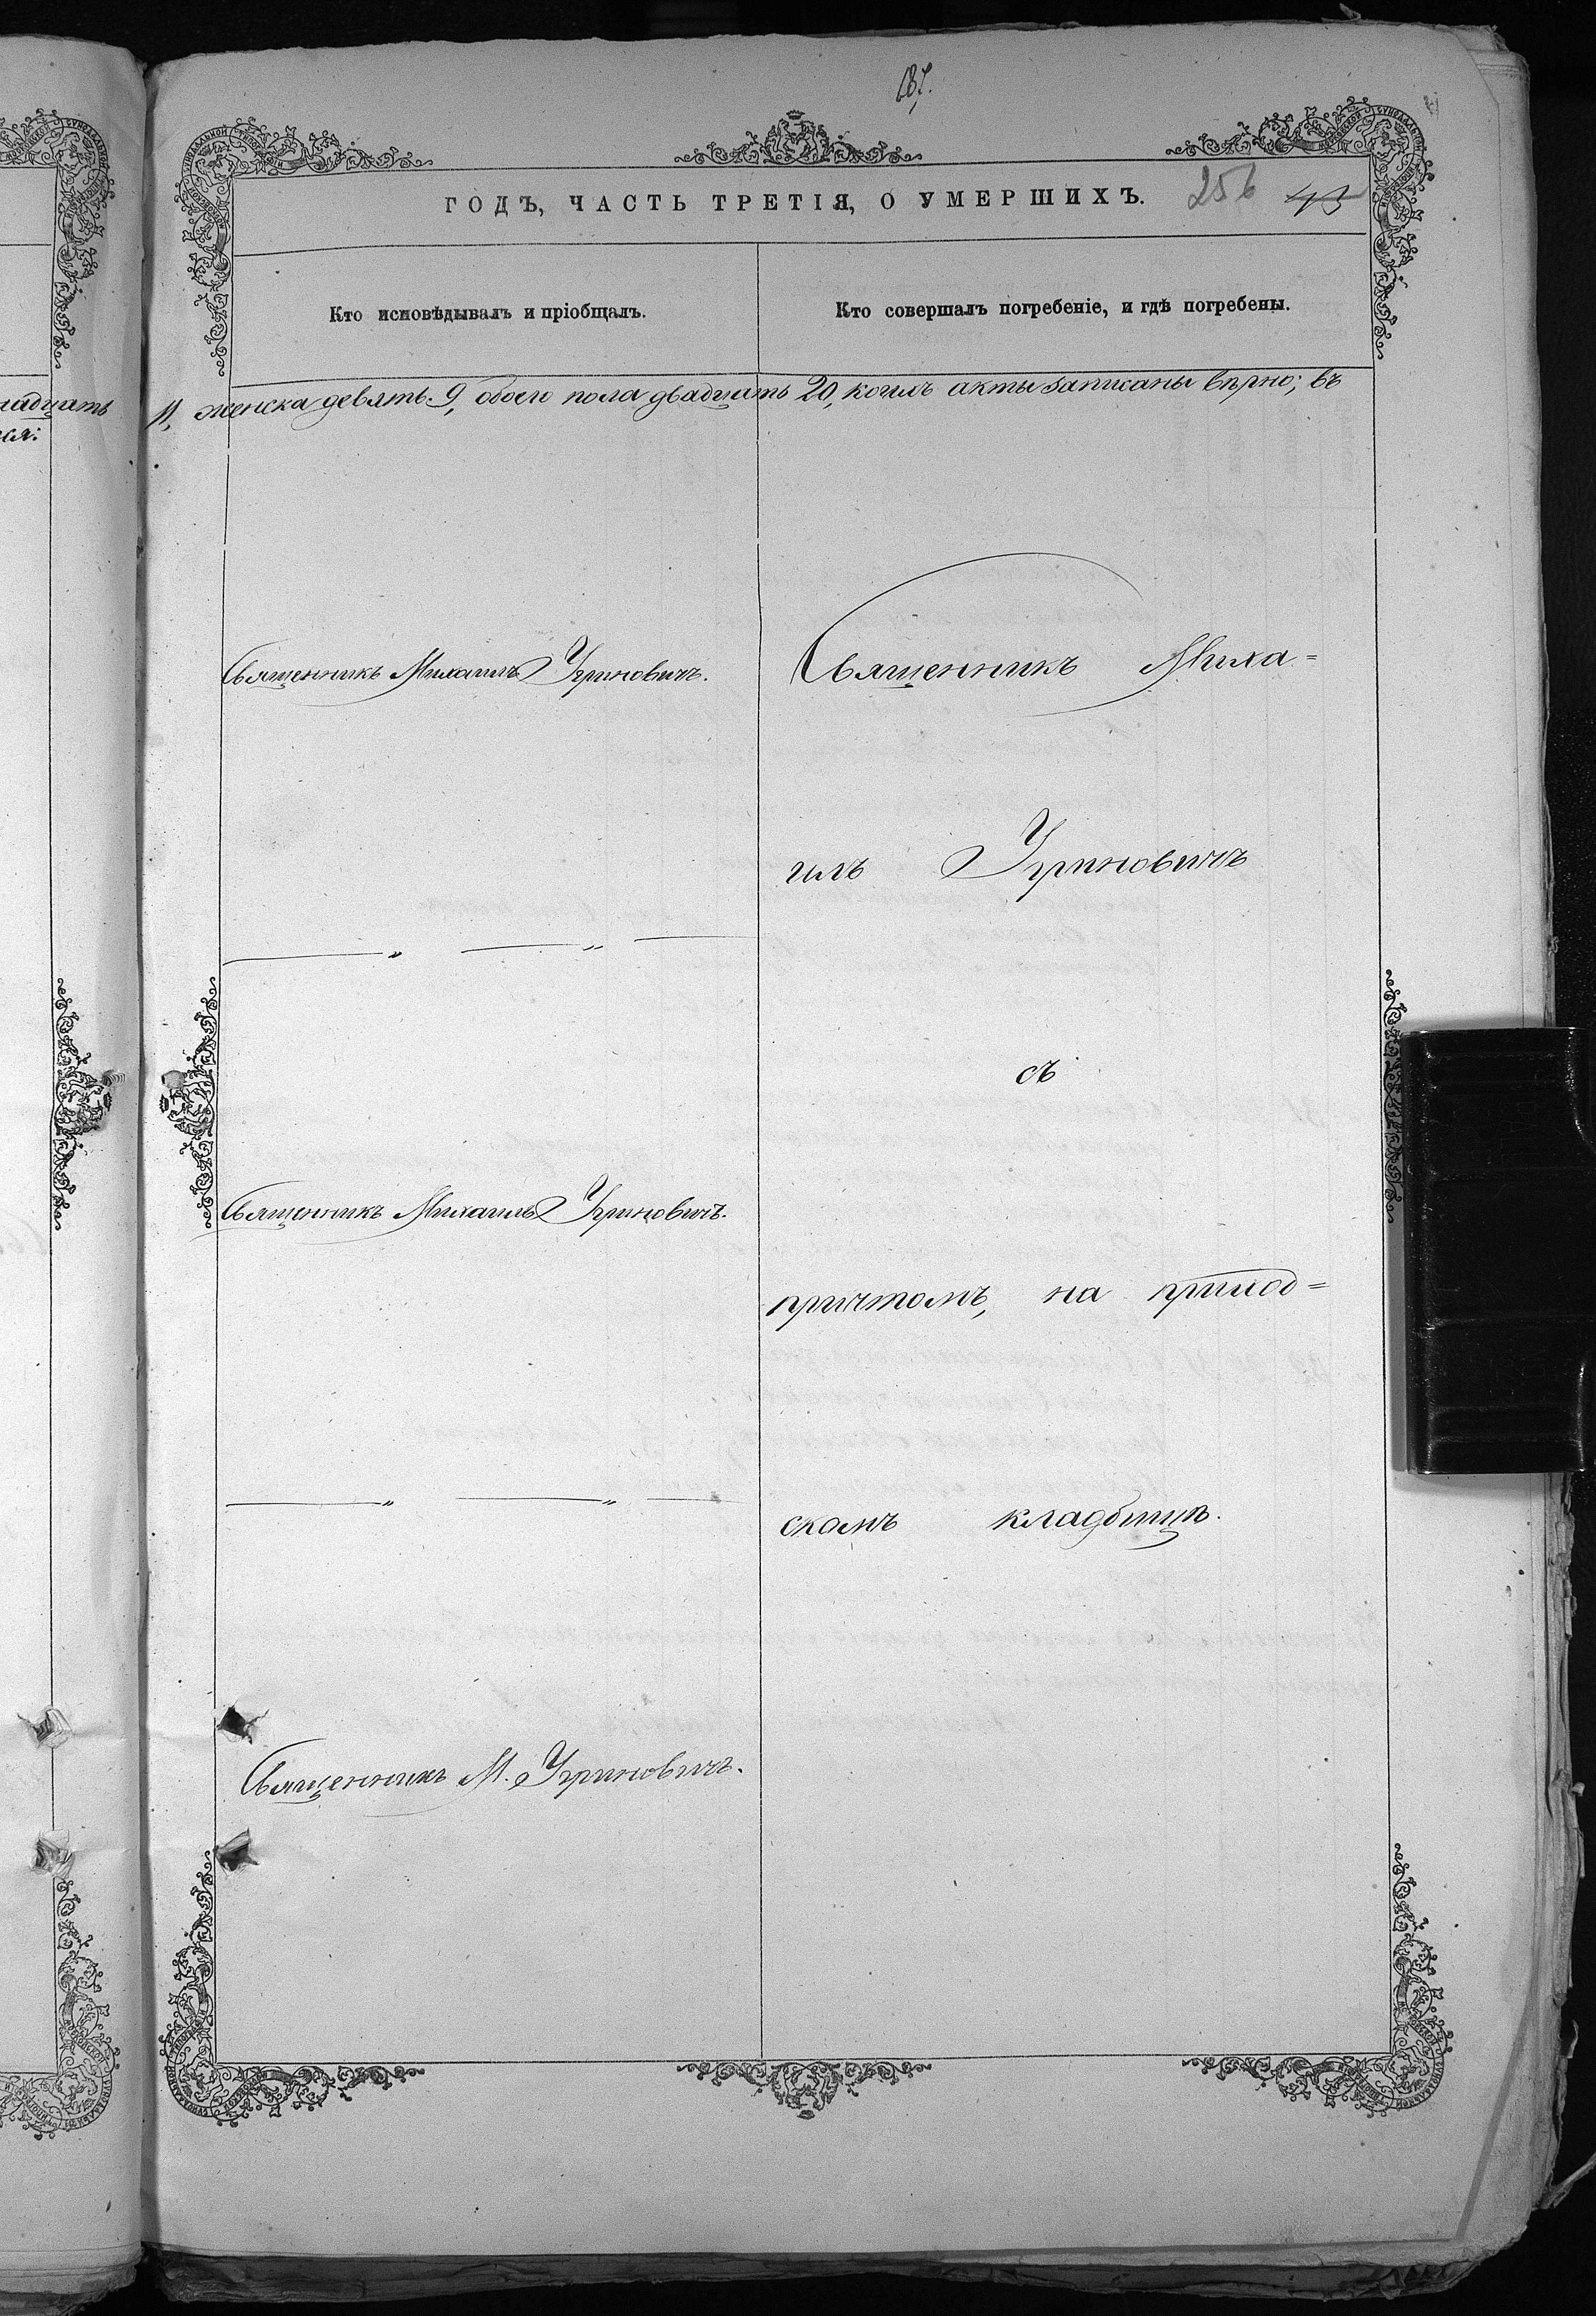 187.
ГОДЪ, ЧАСТЬ ТРЕТІЯ, О УМЕРШИХЪ. 256 43
Кто исповѣдывалъ и пріобщалъ.
Кто совершалъ погребеніе, и гдѣ погребены.
11, женска девять. 9, обоего пола двадцать 20, коихъ акты записаны вѣрно; въ
Священникъ Михаилъ Угриновичъ.
Священникъ Миха=
илъ Угриновичъ
съ
Священникъ Михаилъ Угриновичъ.
причтомъ, на приход=
скомъ кладбищѣ.
Священникъ М. Угриновичъ.